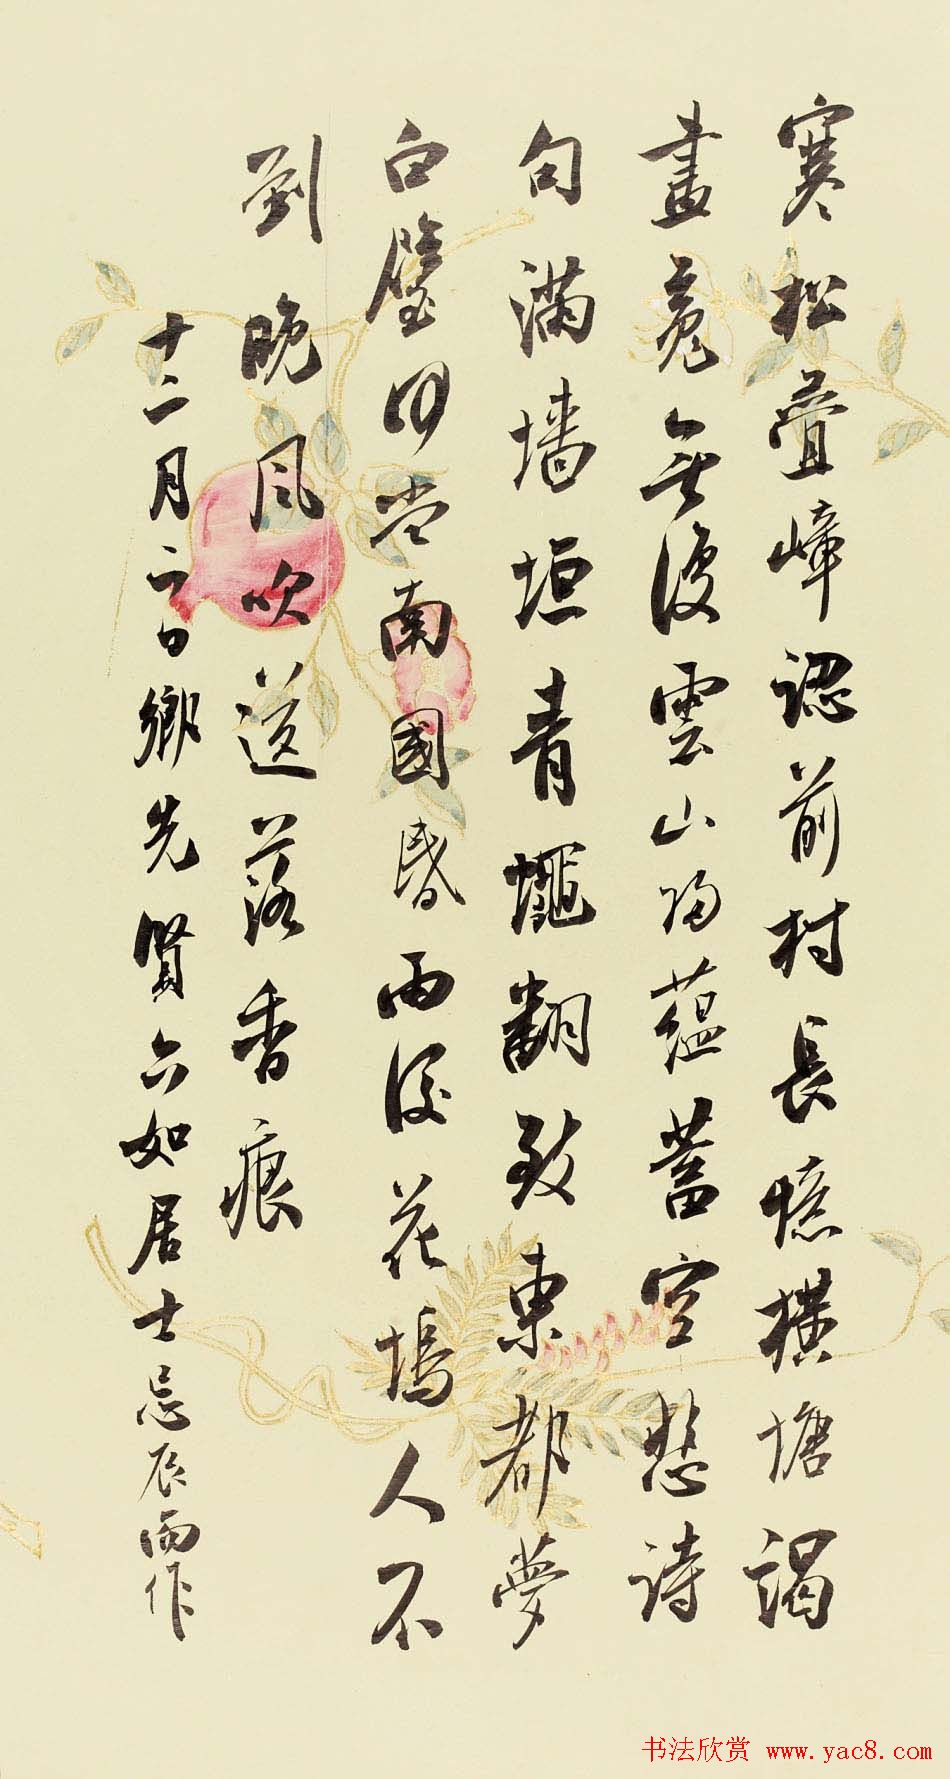 寒松疊嶂認前村長憶橫塘謁
畫魂無復雲山歸蘊蓄空愁詩
句滿墻垣青蠅翻致東都夢
白璧何嘗南國昏雨後花塢人不
到晚風吹送落香痕
十二月二日鄉先賢六如居士忌辰而作
书法欣赏 www.yac8.com